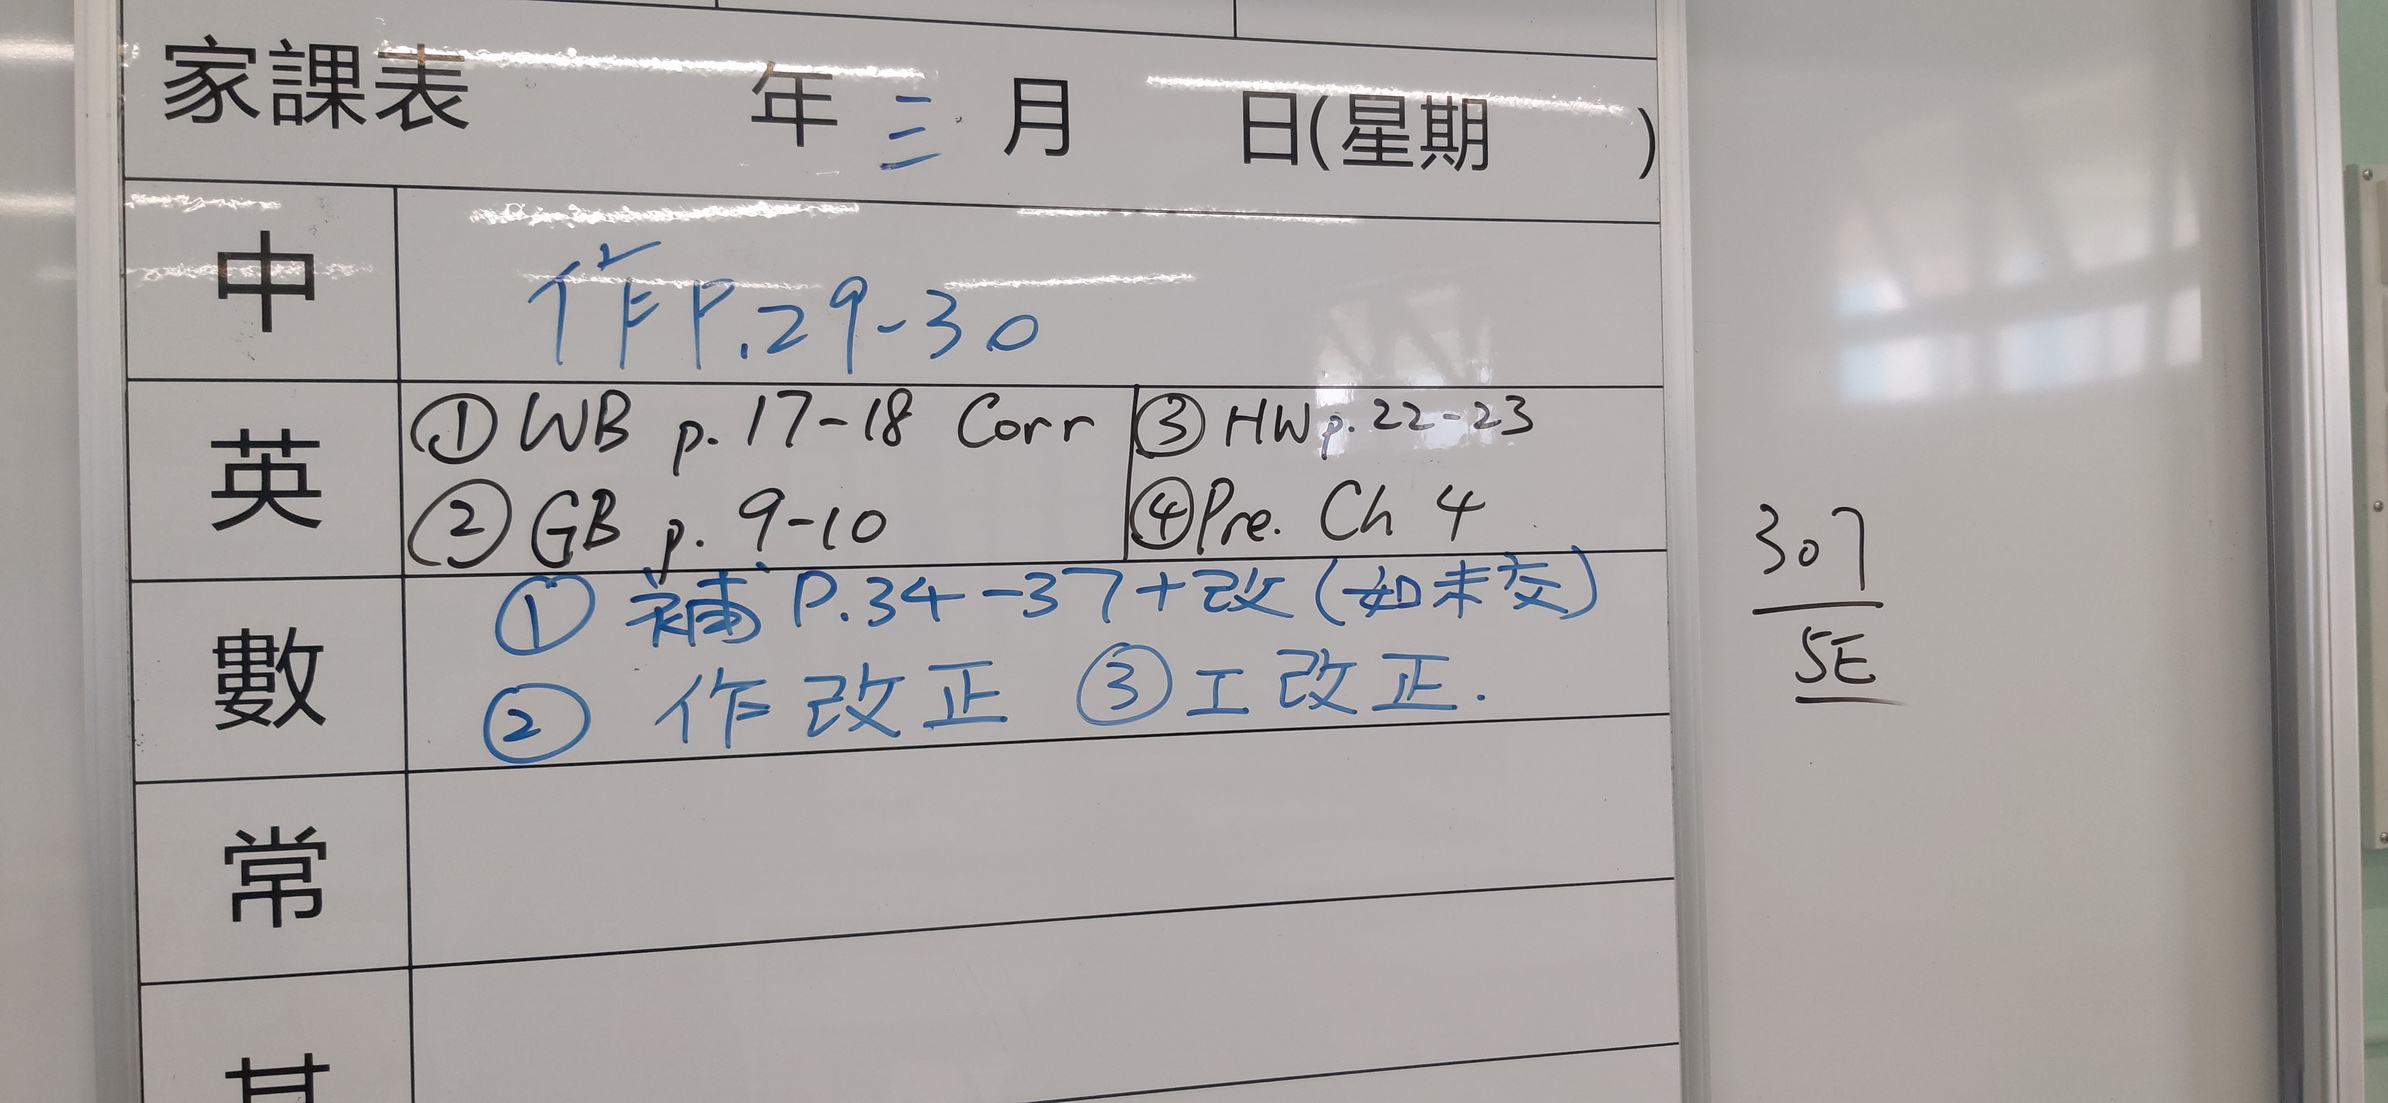 家課表 年 三 月 日(星期 )
中 作 P.29-30
英 ① WB p. 17-18 Corr ③ HW p. 22-23
② GB p. 9-10 ④ Pre. Ch 4
數 ① 補 P.34-37+改(如未交)
② 作改正 ③ 工改正.
常
307
5E